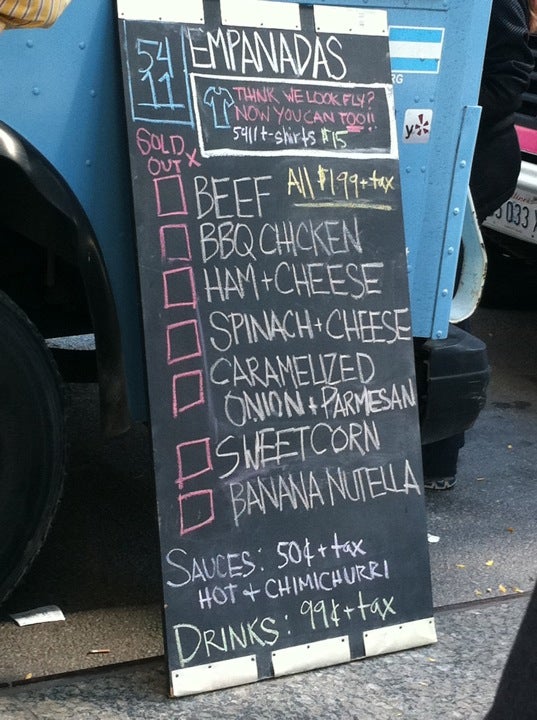 54
11
EMPANADAS
THINK WE LOOK FLY?
NOW YOU CAN TOO!!
5411 t-shirts $15
SOLD
OUT X
All $1.99 + tax
BEEF
BBQ CHICKEN
HAM + CHEESE
SPINACH + CHEESE
CARAMELIZED
ONION + PARMESAN
SWEETCORN
BANANA NUTELLA
SAUCES: 50¢ + tax
HOT + CHIMICHURRI
DRINKS: 99¢ + tax
RG
y
033